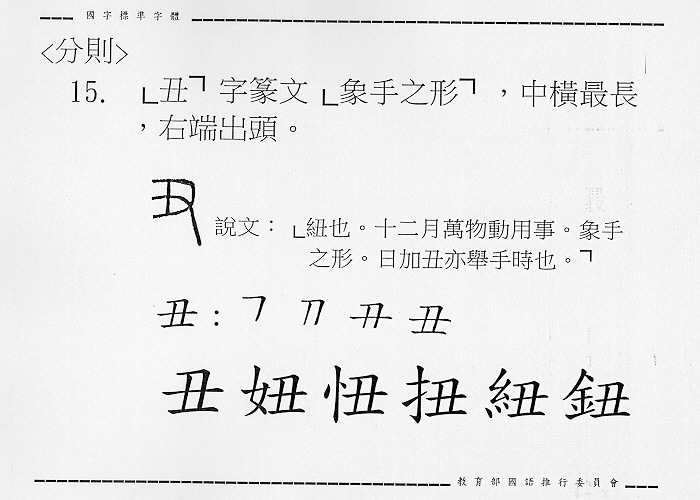 國字標準字體
<分則>
15. 「丑」字篆文「象手之形」，中橫最長
，右端出頭。
說文：「紐也。十二月萬物動用事。象手
之形。日加丑亦舉手時也。」
丑：
丑
丑妞忸扭紐鈕
教育部國語推行委員會